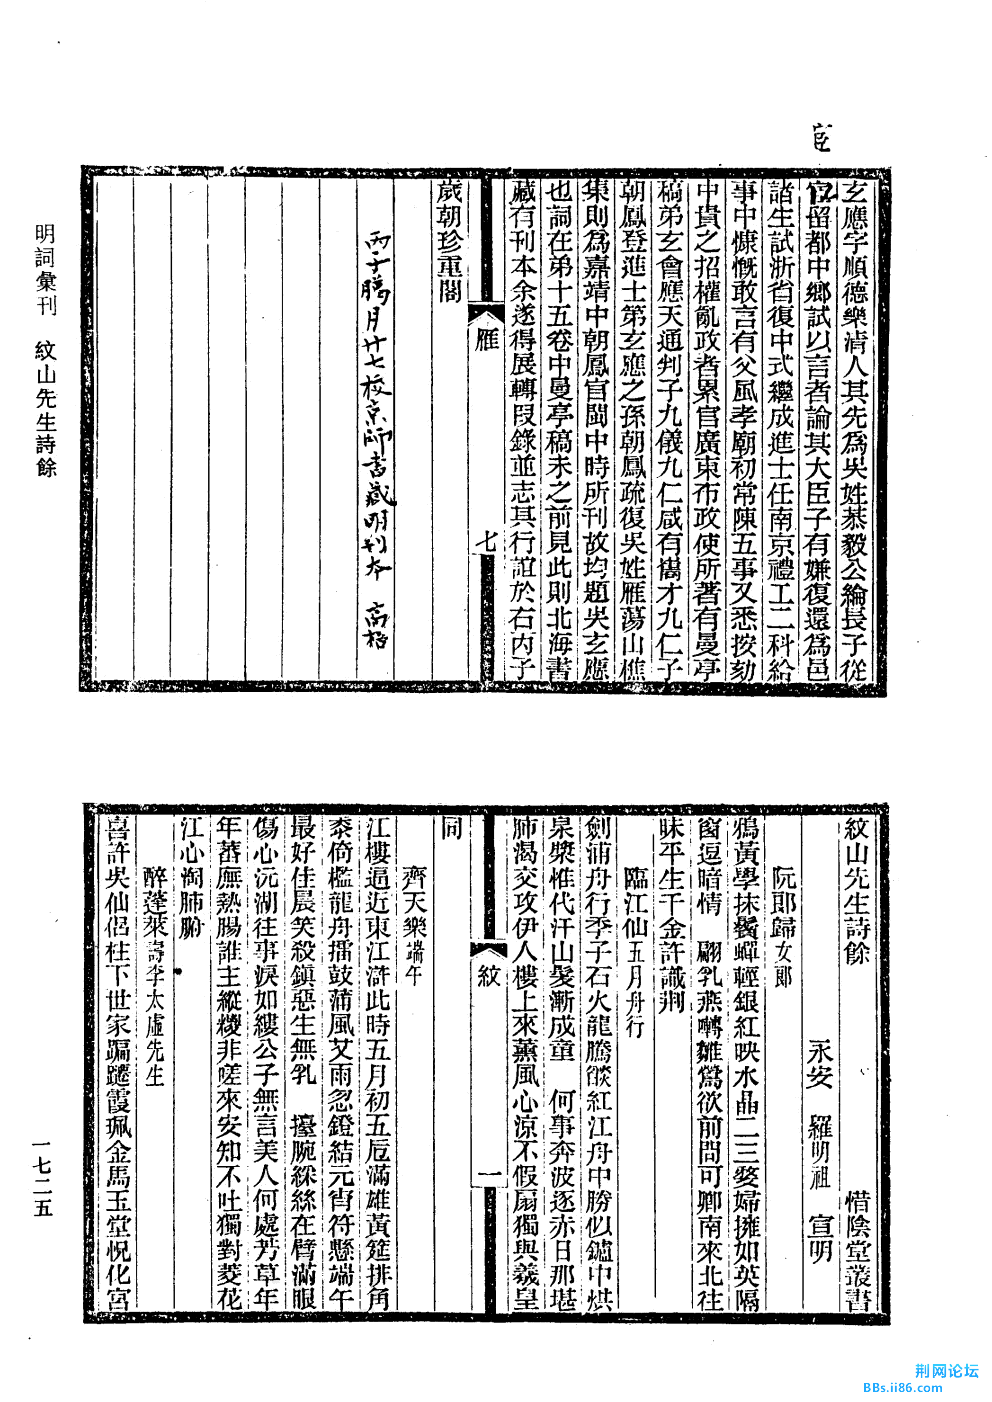 宦
玄應字順德樂清人其先爲吳姓恭毅公綸長子從
官留都中鄉試以言者論其大臣子有嫌復還爲邑
諸生試浙省復中式繼成進士任南京禮工二科給
事中慷慨敢言有父風孝廟初常陳五事又悉按劾
中貴之招權亂政者累官廣東布政使所著有曼亭
稿弟玄會應天通判子九儀九仁咸有雋才九仁子
朝鳳登進士第玄應之孫朝鳳疏復吳姓雁蕩山樵
集則爲嘉靖中朝鳳官閩中時所刊故均題吳玄應
也詞在弟十五卷中曼亭稿未之前見此則北海書
藏有刊本余遂得展轉叚錄並志其行誼於右丙子
雁
七
歲朝珍重閣
丙子臈月廿七校京師書藏明刊本 高梧
明詞彙刊 紋山先生詩餘
一七二五
紋山先生詩餘 惜陰堂叢書
永安 羅明祖 宣明
阮郎歸女郎
鴉黃學抹鬢蟬輕銀紅映水晶二三婺婦擁如英隔
窗逗暗情 翩乳燕囀雛鶯欲前問可卿南來北往
昧平生千金許識荆
臨江仙五月舟行
劍浦舟行季子石火龍騰燄紅江舟中勝似鑪中烘
泉漿惟代汗山髮漸成童 何事奔波逐赤日那堪
肺渴交攻伊人樓上來薰風心涼不假扇獨與羲皇
紋
一
同
齊天樂端午
江樓逼近東江滸此時五月初五卮滿雄黃筵排角
黍倚檻龍舟擂鼓蒲風艾雨忽鐙結元宵符懸端午
最好佳晨笑殺鎮惡生無乳 擡腕綵絲在臂滿眼
傷心沅湖往事淚如縷公子無言美人何處芳草年
年蕃廡熱腸誰主縱糭非嗟來安知不吐獨對菱花
江心淘肺腑
醉蓬萊壽李太虛先生
喜許吳仙侶柱下世家蹁躚霞珮金馬玉堂怳化宮
荆网论坛
BBs.ii86.com